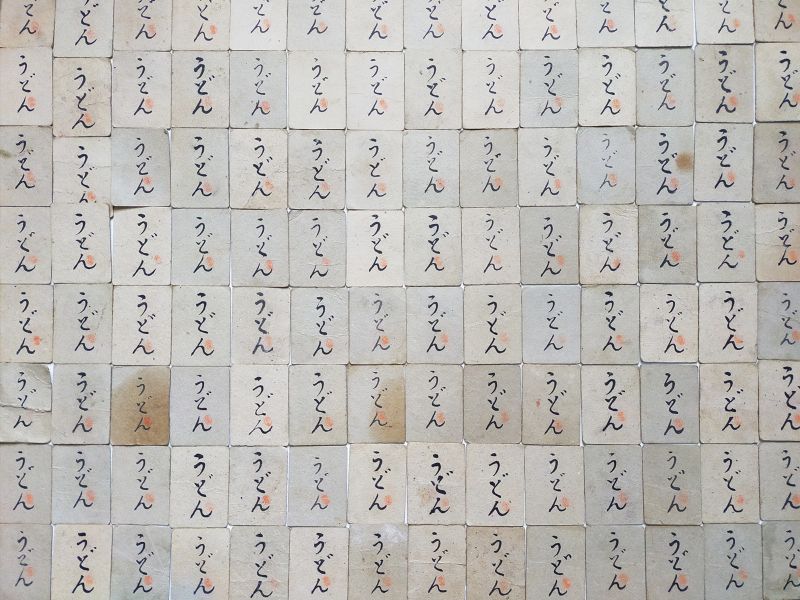 どん うどん どん どん どん どん どん どん どん どん どん どん どん どん
うどん うどん うどん うどん うどん うどん うどん うどん うどん うどん うどん うどん うどん うどん
うどん うどん うどん うどん うどん うどん うどん うどん うどん うどん うどん うどん うどん うどん
うどん うどん うどん うどん うどん うどん うどん うどん うどん うどん うどん うどん うどん うどん
うどん うどん うどん うどん うどん うどん うどん うどん うどん うどん うどん うどん うどん うどん
うどん うどん うどん うどん うどん うどん うどん うどん うどん うどん うどん うどん うどん うどん
うどん うどん うどん うどん うどん うどん うどん うどん うどん うどん うどん うどん うどん うどん
うどん うどん うどん うどん うどん うどん うどん うどん うどん うどん うどん うどん うどん うどん